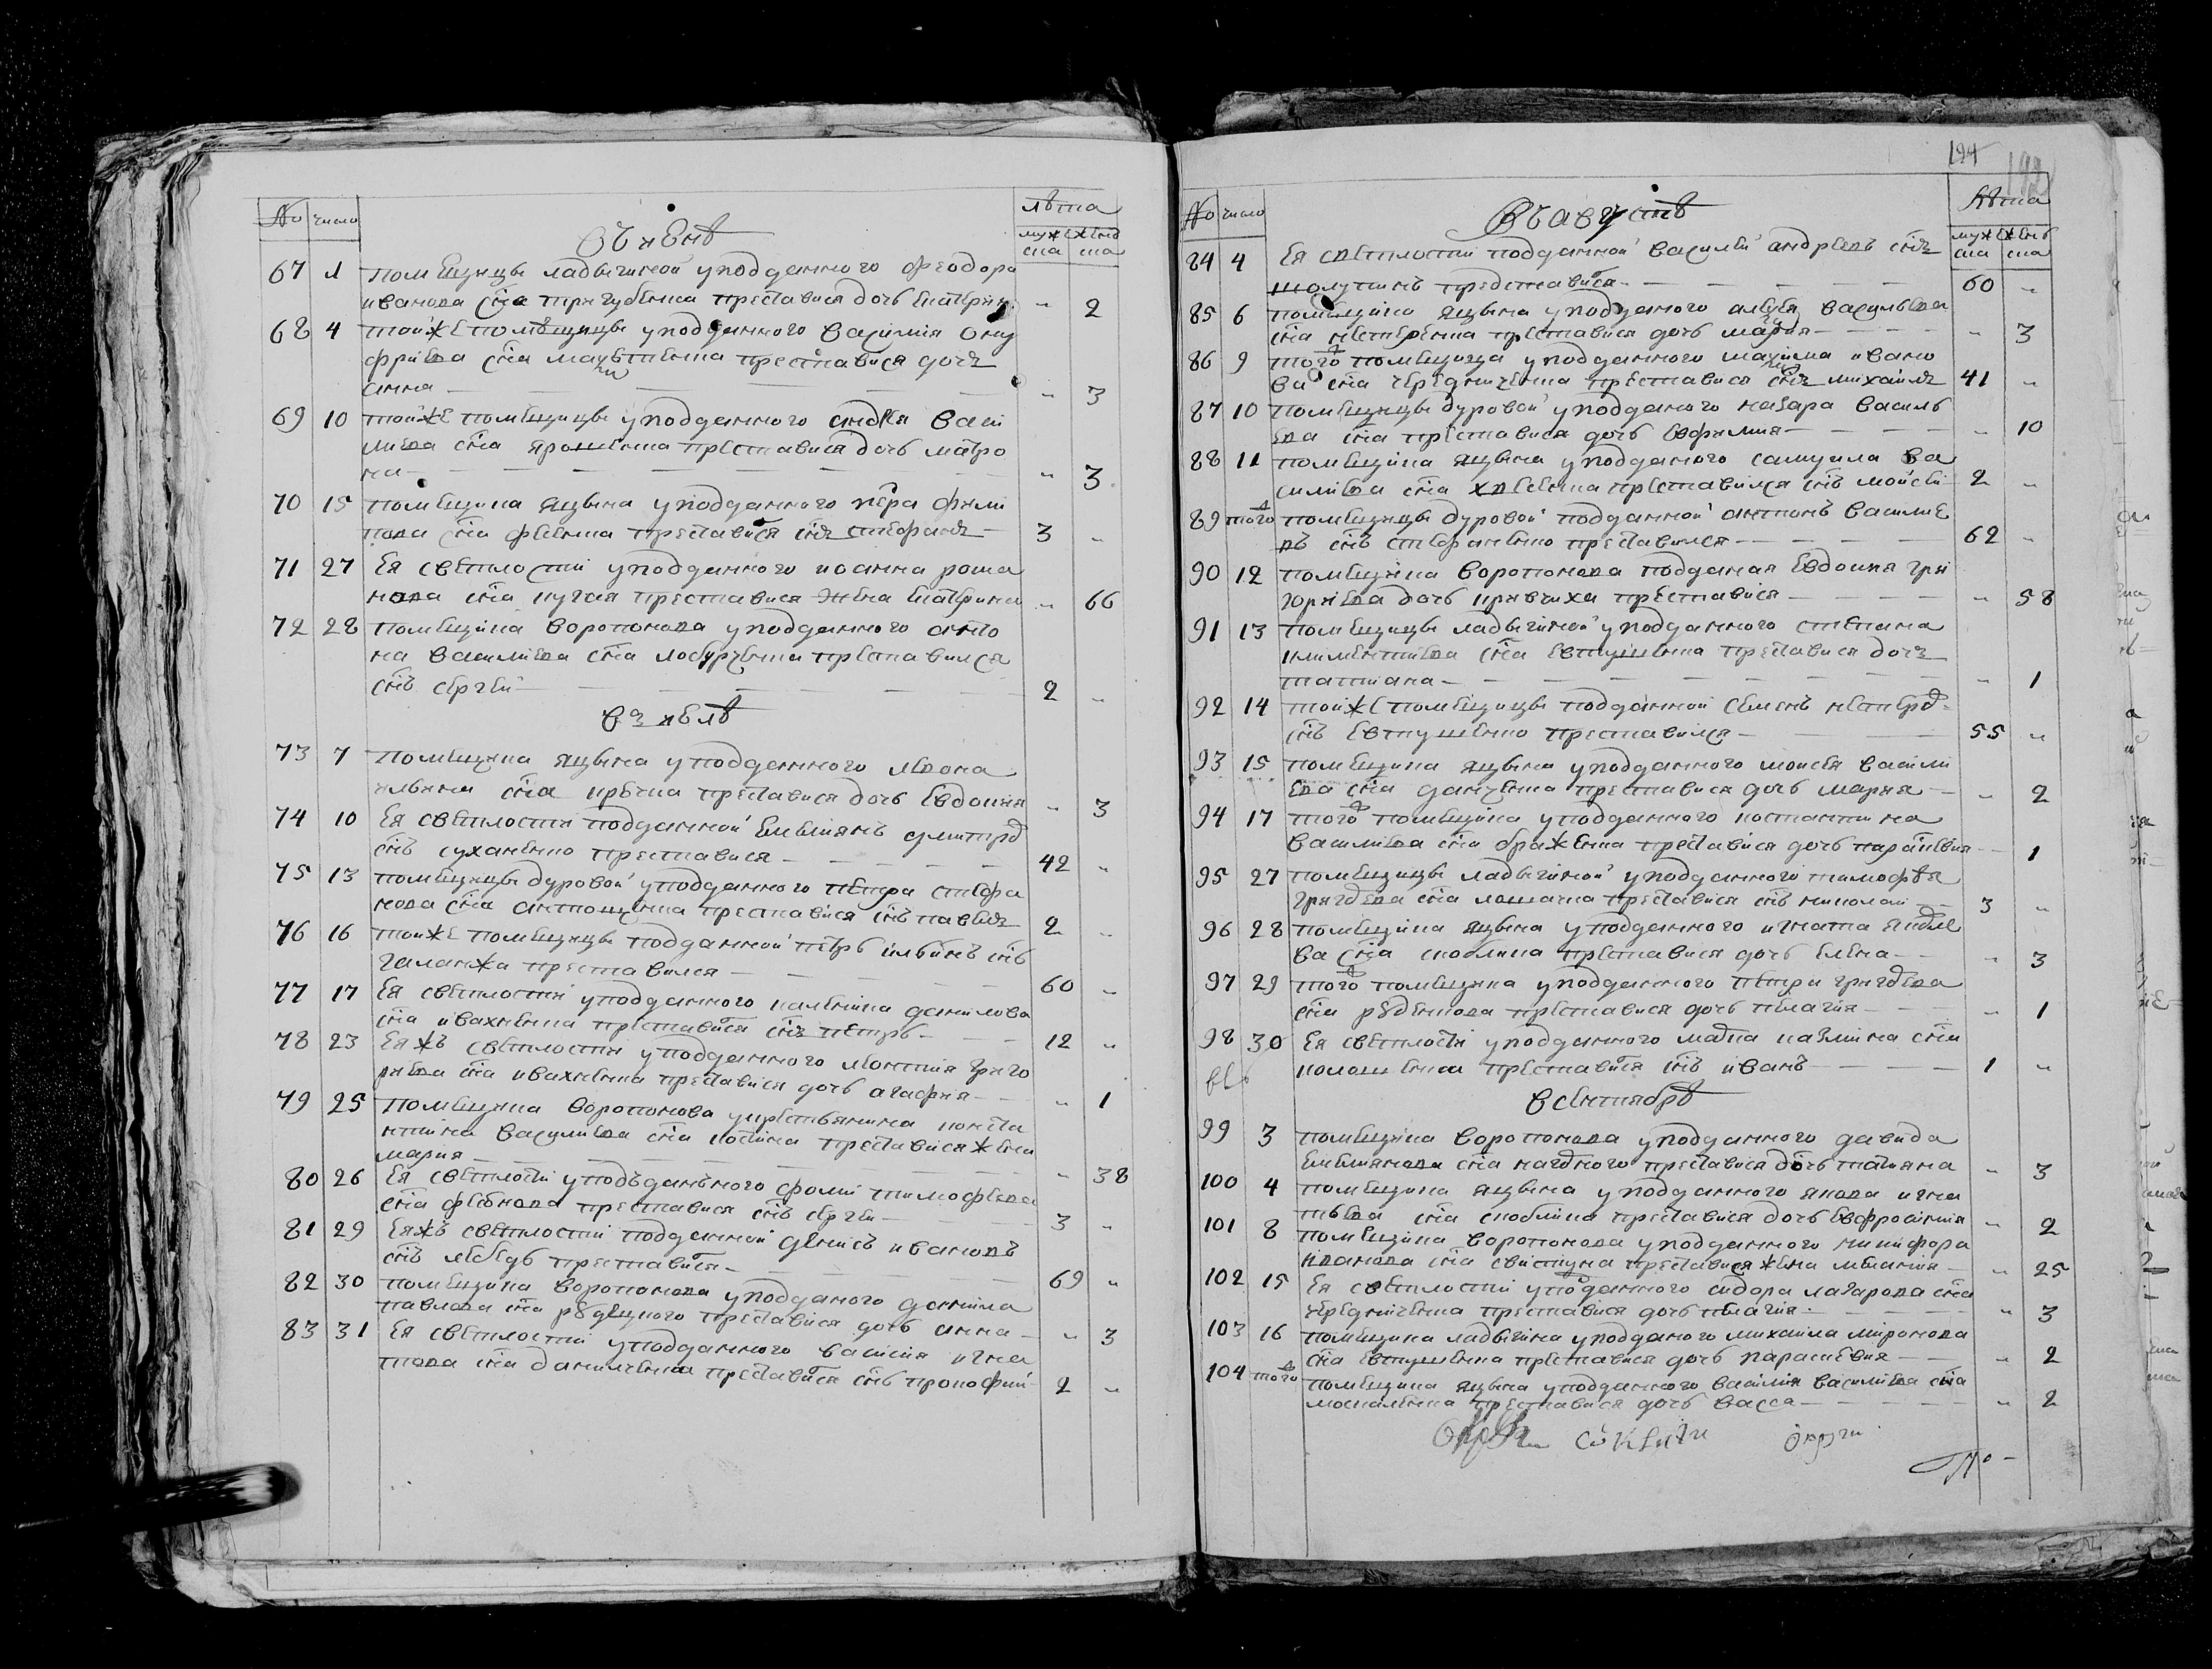 № число лѣта
мужеска женска
въ июнѣ
67 1 помещицы ладыгиной у подданного феодора
иванова сна тригубенка преставися дочь екатерин " 2
68 4 тойже помѣщицы у подданного василия ону
фриева сна преставися дочъ
анна " 3
69 10 тойже помещицы у подданного андрея васи
лиева сна ярошенка преставися дочь матро
на " 3
70 15 помещика яцына у подданного петра фили
пова сна преставися снъ стефанъ 3 "
71 27 Ея светлости у подданного иоанна рома
нова сна кугая преставися жена екатерина " 66
72 28 помещика воропонова у подданного анто
на василиева сна преставился
снъ сергей 2 "
въ июлѣ
73 7 помещика яцына у подданного леона
ильина сна преставися дочь Евдокия " 3
74 10 Ея светлости подданной Емелиянъ дмитриев
снъ суханенко преставися 42 "
75 13 помещицы дуровой у подданного петра стефа
нова сна антощенка преставися снъ павелъ 2 "
76 16 тойже помещицы подданной петръ ильинъ снъ
галанжа преставился 60 "
77 17 Ея светлости у подданного каленика данилова
сна ивахненка преставися снъ петръ 12 "
78 23 Еяжъ светлости у подданного леонтия григо
риева сна ивахненка преставися дочь агафия " 1
79 25 помещика воропонова у крестьянина конста
нтина василиева сна костина преставися жена
мария " 38
80 26 Ея светлости у подъданьного фоми тимофеева
сна преставися снъ сергеи 3 "
81 29 Еяжъ светлости подданной денисъ ивановъ
снъ лебедь преставися 69 "
82 30 помещика воропонова у подданого данила
павлова сна преставися дочь анна " 3
83 31 Ея светлости у подданного василия игна
това сна данилченка преставися снъ прокофий 2 "
194
№ число Лѣта
мужеска женска
Въ августѣ
84 4 Ея светлости подданной василей андреевъ снъ
преставися 60 "
85 6 помещика яцына у подданого алексея василиева
сна нестеренка преставися дочь мария " 3
86 9 того помещика у подданного максима ивано
ва сна чередниченка преставися снъ михаилъ 41 "
87 10 помещицы дуровой у подданого назара василь
ева сна преставися дочь Евфимия " 10
88 11 помещика яцына у подданого самуила ва
силиева сна преставился снъ мойсей 2 "
89 того помещицы дуровой подданной антонъ василие
въ снъ стефаненко преставился 62 "
90 12 помещика воропонова подданая Евдокия гри
гориева дочь кривчиха преставися " 58
91 13 помещицы ладыгиной у подданного степана
климентиева сна Евтушенка преставися дочъ
татиана " 1
92 14 тойже помещицы подданной семенъ нестеров
снъ Евтушенко преставился 55 "
93 15 помещика яцына у подданного моисея васили
ева сна данченка преставися дочь мария " 2
94 17 того помещика у подданного костантина
василиева сна браженка преставися дочь параскевия " 1
95 27 помещицы ладыгиной у подданного тимофѣя
григориева сна лошака преставися снъ николаи 3 "
96 28 помещика яцына у подданного игната яковле
ва сна скоблика преставися дочь Елена " 3
97 29 того помещика у подданного петра григориева
сна преставися дочь пелагия " 1
98 30 Ея светлости у подданного сна
преставися снъ иванъ 1 "
в сентябрѣ
99 3 помещика воропонова у подданного давида
Емелиянова сна преставися дочь татияна " 3
100 4 помещика яцына у подданного якова игна
тиева сна скоблика преставися дочь Евфросиния " 2
101 8 помещика воропонова у подданного никифора
иванова сна свистуна преставися жена мелания " 25
102 15 Ея светлости у подданного сидора лазарова сна
чередниченка преставися дочь пелагия " 3
103 16 помещика ладыгина у подданого михаила миронова
сна Евтушенка преставися дочь параскевия " 2
104 того помещика яцына у подданного василия василиева сна
москаленка преставися дочь васса " 2